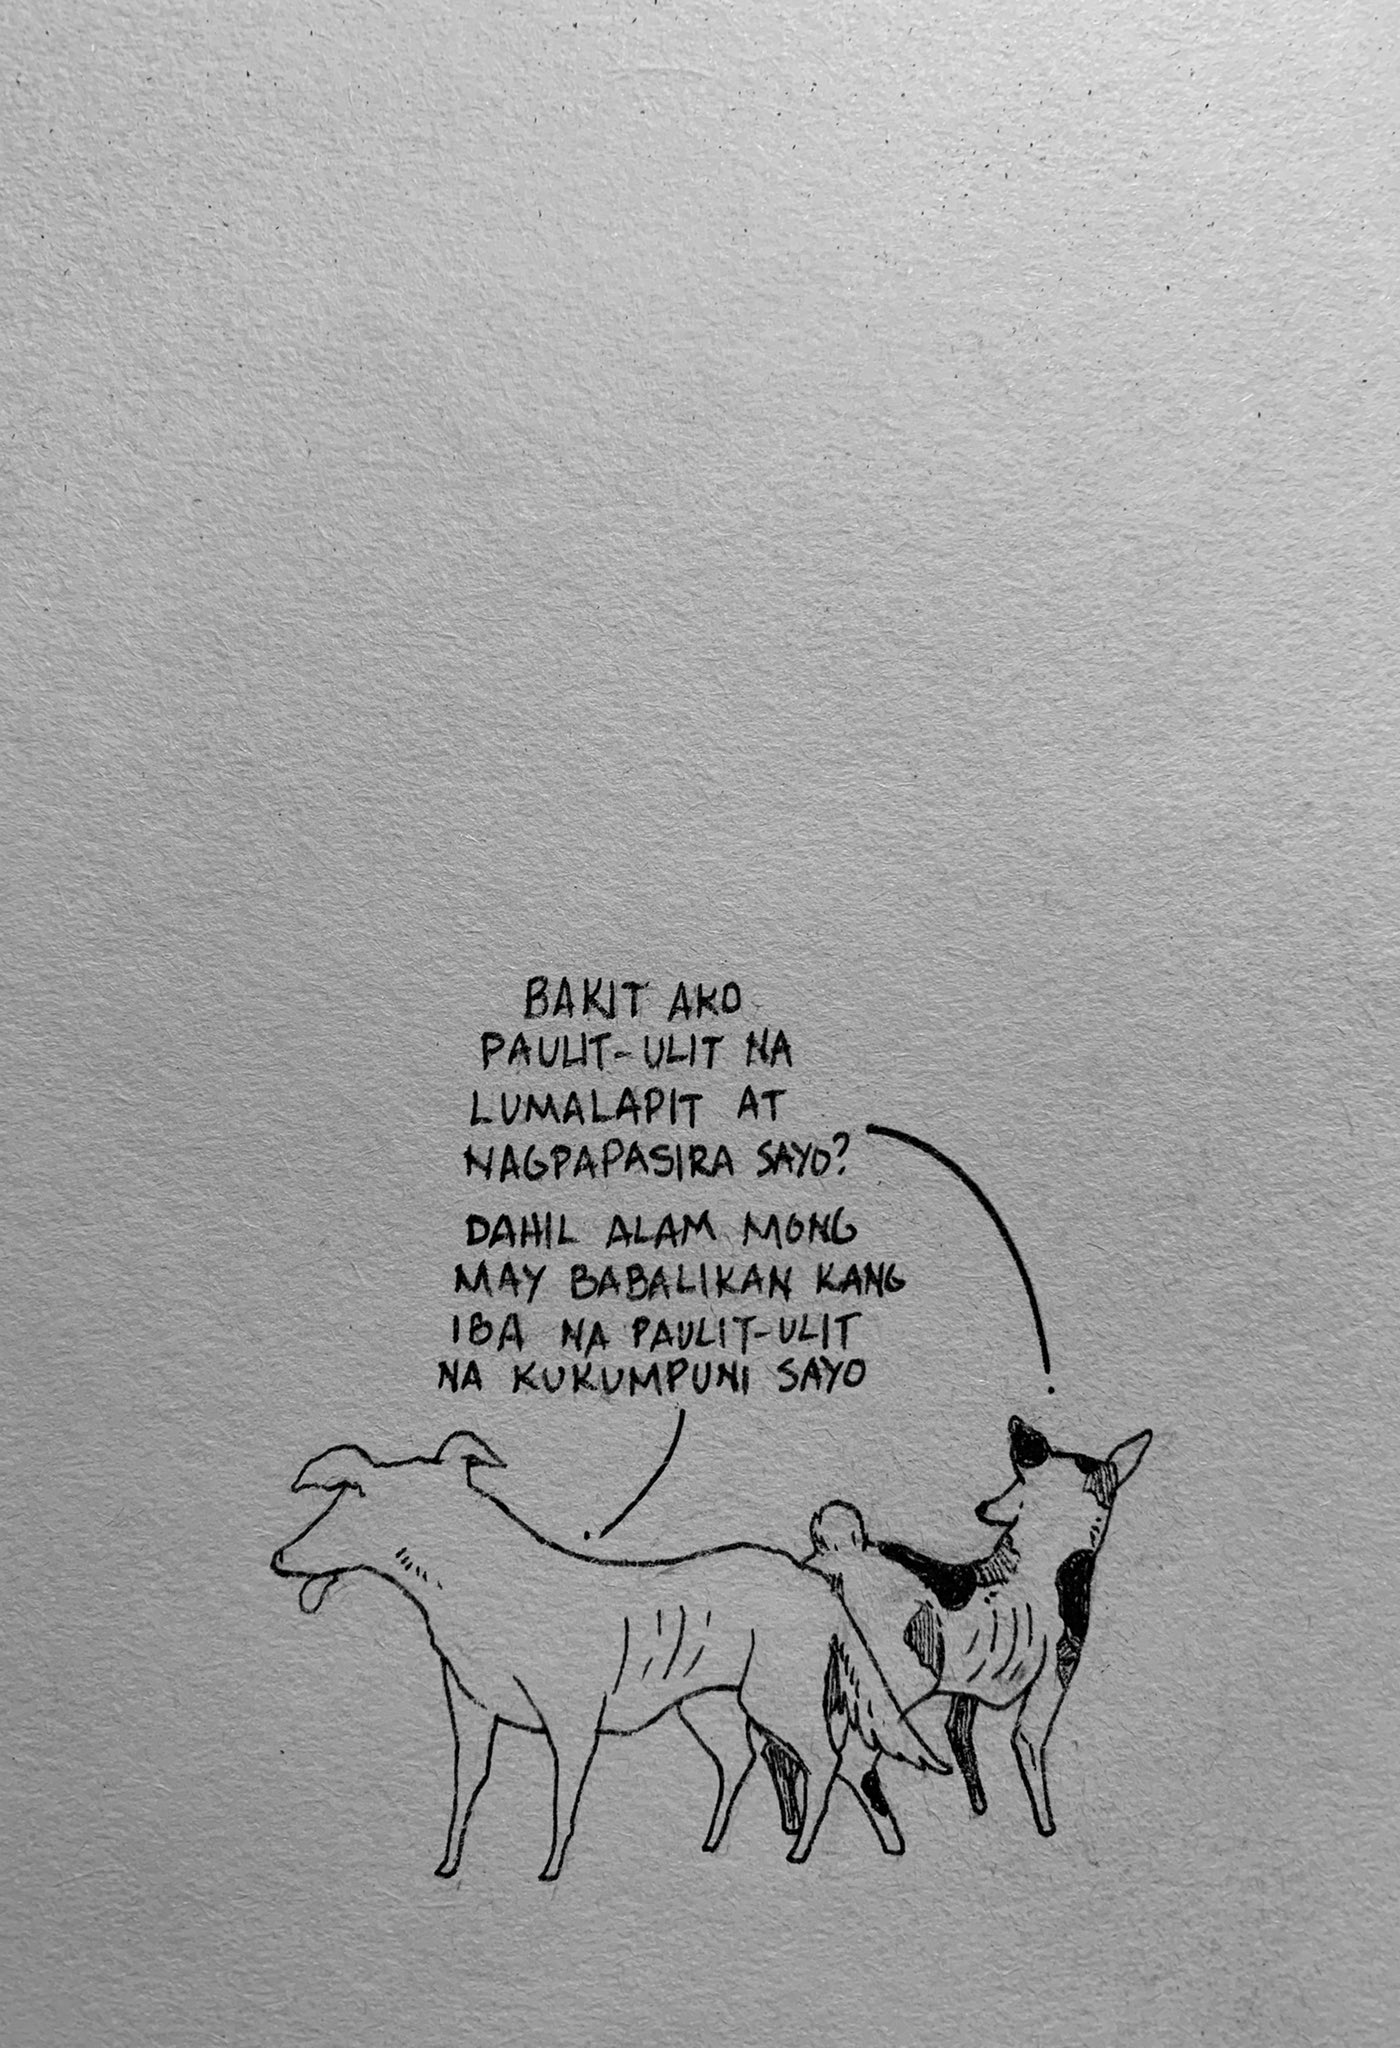 BAKIT AKO
PAULIT-ULIT NA
LUMALAPIT AT
NAGPAPASIRA SAYO?
DAHIL ALAM MONG
MAY BABALIKAN KANG
IBA NA PAULIT-ULIT
NA KUKUMPUNI SAYO